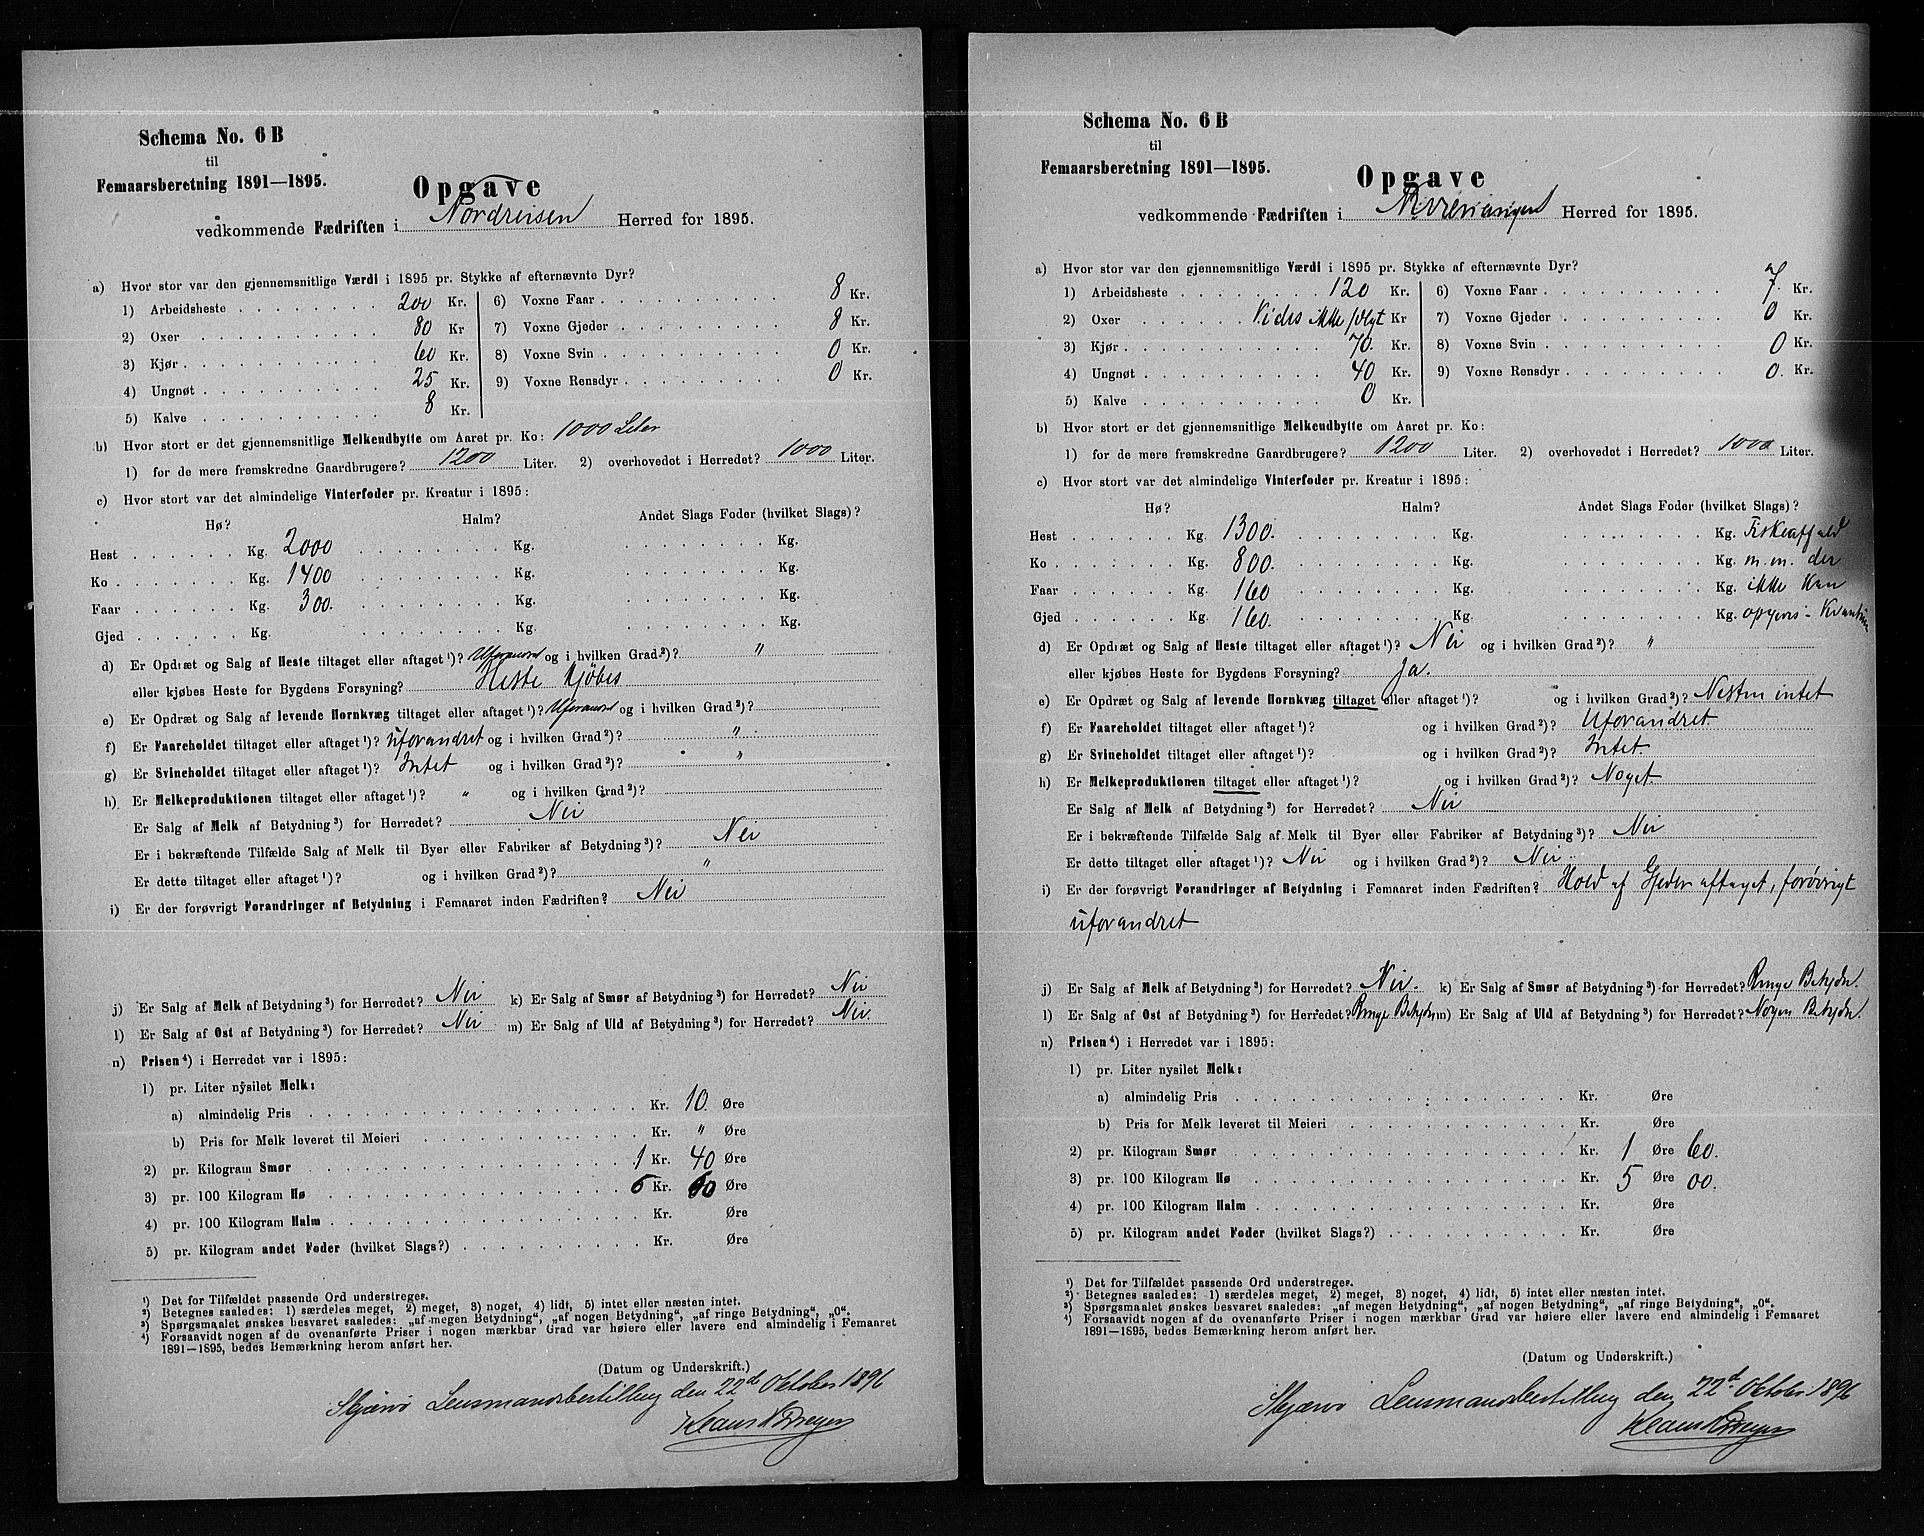 Schema No. 6 B
til
Femaarsberetning 1891—1895.
Opgave
vedkommende Fædriften i Nordreisen Herred for 1895.
a) Hvor stor var den gjennemsnitlige Værdi i 1895 pr. Stykke af efternævnte Dyr?
1) Arbeidsheste 200 Kr. 6) Voxne Faar 8 Kr.
2) Oxer 80 Kr 7) Voxne Gjeder 8 Kr.
3) Kjør 60 Kr. 8) Voxne Svin 0 Kr.
4) Ungnøt 25 Kr. 9) Voxne Rensdyr 0 Kr.
5) Kalve 8 Kr.
b) Hvor stort er det gjennemsnitlige Melkeudbytte om Aaret pr. Ko: 1000 Liter
1) for de mere fremskredne Gaardbrugere? 1200 Liter. 2) overhovedet i Herredet? 1000 Liter.
c) Hvor stort var det almindelige Vinterfoder pr. Kreatur i 1895:
Hø? Halm? Andet Slags Foder (hvilket Slags)?
Hest Kg. 2000 Kg. Kg.
Ko Kg. 1400 Kg. Kg.
Faar Kg. 300. Kg. Kg.
Gjed Kg. Kg. Kg.
d) Er Opdræt og Salg af Heste tiltaget eller aftaget ¹)? og i hvilken Grad ²)? "
eller kjøbes Heste for Bygdens Forsyning? Heste kjøbes
e) Er Opdræt og Salg af levende Hornkvæg tiltaget eller aftaget ¹)? og i hvilken Grad ²)?
f) Er Faareholdet tiltaget eller aftaget ¹)? uforandret og i hvilken Grad ²)? "
g) Er Svineholdet tiltaget eller aftaget ¹)? Intet og i hvilken Grad ²)? "
h) Er Melkeproduktionen tiltaget eller aftaget ¹)? " og i hvilken Grad ²)?
Er Salg af Melk af Betydning ³) for Herredet? Nei
Er i bekræftende Tilfælde Salg af Melk til Byer eller Fabriker af Betydning ³)? Nei
Er dette tiltaget eller aftaget ¹)? og i hvilken Grad ²)? "
i) Er der forøvrigt Forandringer af Betydning i Femaaret inden Fædriften? Nei
j) Er Salg af Melk af Betydning ³) for Herredet? Nei k) Er Salg af Smør af Betydning ³) for Herredet? Nei
l) Er Salg af Ost af Betydning ³) for Herredet? Nei m) Er Salg af Uld af Betydning ³) for Herredet? Nei.
n) Prisen ⁴) i Herredet var i 1895:
1) pr. Liter nysilet Melk:
a) almindelig Pris Kr. 10. Øre
b) Pris for Melk leveret til Meieri Kr. " Øre
2) pr. Kilogram Smør 1 Kr. 40 Øre
3) pr. 100 Kilogram Hø Kr. Øre
4) pr. 100 Kilogram Halm Kr. Øre
5) pr. Kilogram andet Foder (hvilket Slags?) Kr. Øre
¹) Det for Tilfældet passende Ord understreges.
²) Betegnes saaledes: 1) særdeles meget, 2) meget, 3) noget, 4) lidt, 5) intet eller næsten intet.
³) Spørgsmaalet ønskes besvaret saaledes: „af megen Betydning“, „af nogen Betydning“, „af ringe Betydning“, „0“.
⁴) Forsaavidt nogen af de ovenanførte Priser i nogen mærkbar Grad var høiere eller lavere end almindelig i Femaaret
1891—1895, bedes Bemærkning herom anført her.
(Datum og Underskrift.)
Skjærvø Lensmandsbestilling den 22de Oktober 1896
Schema No. 6 B
til
Femaarsberetning 1891—1895.
Opgave
vedkommende Fædriften i Herred for 1895.
a) Hvor stor var den gjennemsnitlige Værdi i 1895 pr. Stykke af efternævnte Dyr?
1) Arbeidsheste 120 Kr. 6) Voxne Faar 7. Kr.
2) Oxer Vides ikke solgt Kr 7) Voxne Gjeder 0 Kr.
3) Kjør 70. Kr. 8) Voxne Svin 0 Kr.
4) Ungnøt 40 Kr. 9) Voxne Rensdyr 0. Kr.
5) Kalve 0 Kr.
b) Hvor stort er det gjennemsnitlige Melkeudbytte om Aaret pr. Ko:
1) for de mere fremskredne Gaardbrugere? 1200 Liter. 2) overhovedet i Herredet? 1000 Liter.
c) Hvor stort var det almindelige Vinterfoder pr. Kreatur i 1895:
Hø? Halm? Andet Slags Foder (hvilket Slags)?
Hest Kg. 1300. Kg. Kg. Fiskeaffald
Ko Kg. 800. Kg. Kg. m. m. der
Faar Kg. 160 Kg. Kg. ikke kan
Gjed Kg. 160. Kg. Kg. opgives - Kvantum
d) Er Opdræt og Salg af Heste tiltaget eller aftaget ¹)? Nei og i hvilken Grad ²)? "
eller kjøbes Heste for Bygdens Forsyning? Ja.
e) Er Opdræt og Salg af levende Hornkvæg tiltaget eller aftaget ¹)? og i hvilken Grad ²)? Nesten intet
f) Er Faareholdet tiltaget eller aftaget ¹)? og i hvilken Grad ²)? Uforandret
g) Er Svineholdet tiltaget eller aftaget ¹)? og i hvilken Grad ²)? Intet.
h) Er Melkeproduktionen tiltaget eller aftaget ¹)? og i hvilken Grad ²)? Noget
Er Salg af Melk af Betydning ³) for Herredet? Nei
Er i bekræftende Tilfælde Salg af Melk til Byer eller Fabriker af Betydning ³)? Nei
Er dette tiltaget eller aftaget ¹)? Nei og i hvilken Grad ²)? Nei.
i) Er der forøvrigt Forandringer af Betydning i Femaaret inden Fædriften? Hold af Gjeder aftaget, forøvrigt
uforandret
j) Er Salg af Melk af Betydning ³) for Herredet? Nei. k) Er Salg af Smør af Betydning ³) for Herredet? Ringe Betydn.
l) Er Salg af Ost af Betydning ³) for Herredet? Ringe Betydn m) Er Salg af Uld af Betydning ³) for Herredet? Nogen Betydn.
n) Prisen ⁴) i Herredet var i 1895:
1) pr. Liter nysilet Melk:
a) almindelig Pris Kr. Øre
b) Pris for Melk leveret til Meieri Kr. Øre
2) pr. Kilogram Smør Kr. 1 Øre 60.
3) pr. 100 Kilogram Hø Kr. 5 Øre 00.
4) pr. 100 Kilogram Halm Kr. Øre
5) pr. Kilogram andet Foder (hvilket Slags?) Kr. Øre
¹) Det for Tilfældet passende Ord understreges.
²) Betegnes saaledes: 1) særdeles meget, 2) meget, 3) noget, 4) lidt, 5) intet eller næsten intet.
³) Spørgsmaalet ønskes besvaret saaledes: „af megen Betydning“, „af nogen Betydning“, „af ringe Betydning“, „0“.
⁴) Forsaavidt nogen af de ovenanførte Priser i nogen mærkbar Grad var høiere eller lavere end almindelig i Femaaret
1891—1895, bedes Bemærkning herom anført her.
(Datum og Underskrift.)
Skjærvø Lensmandsbestilling den 22d Oktober 1896